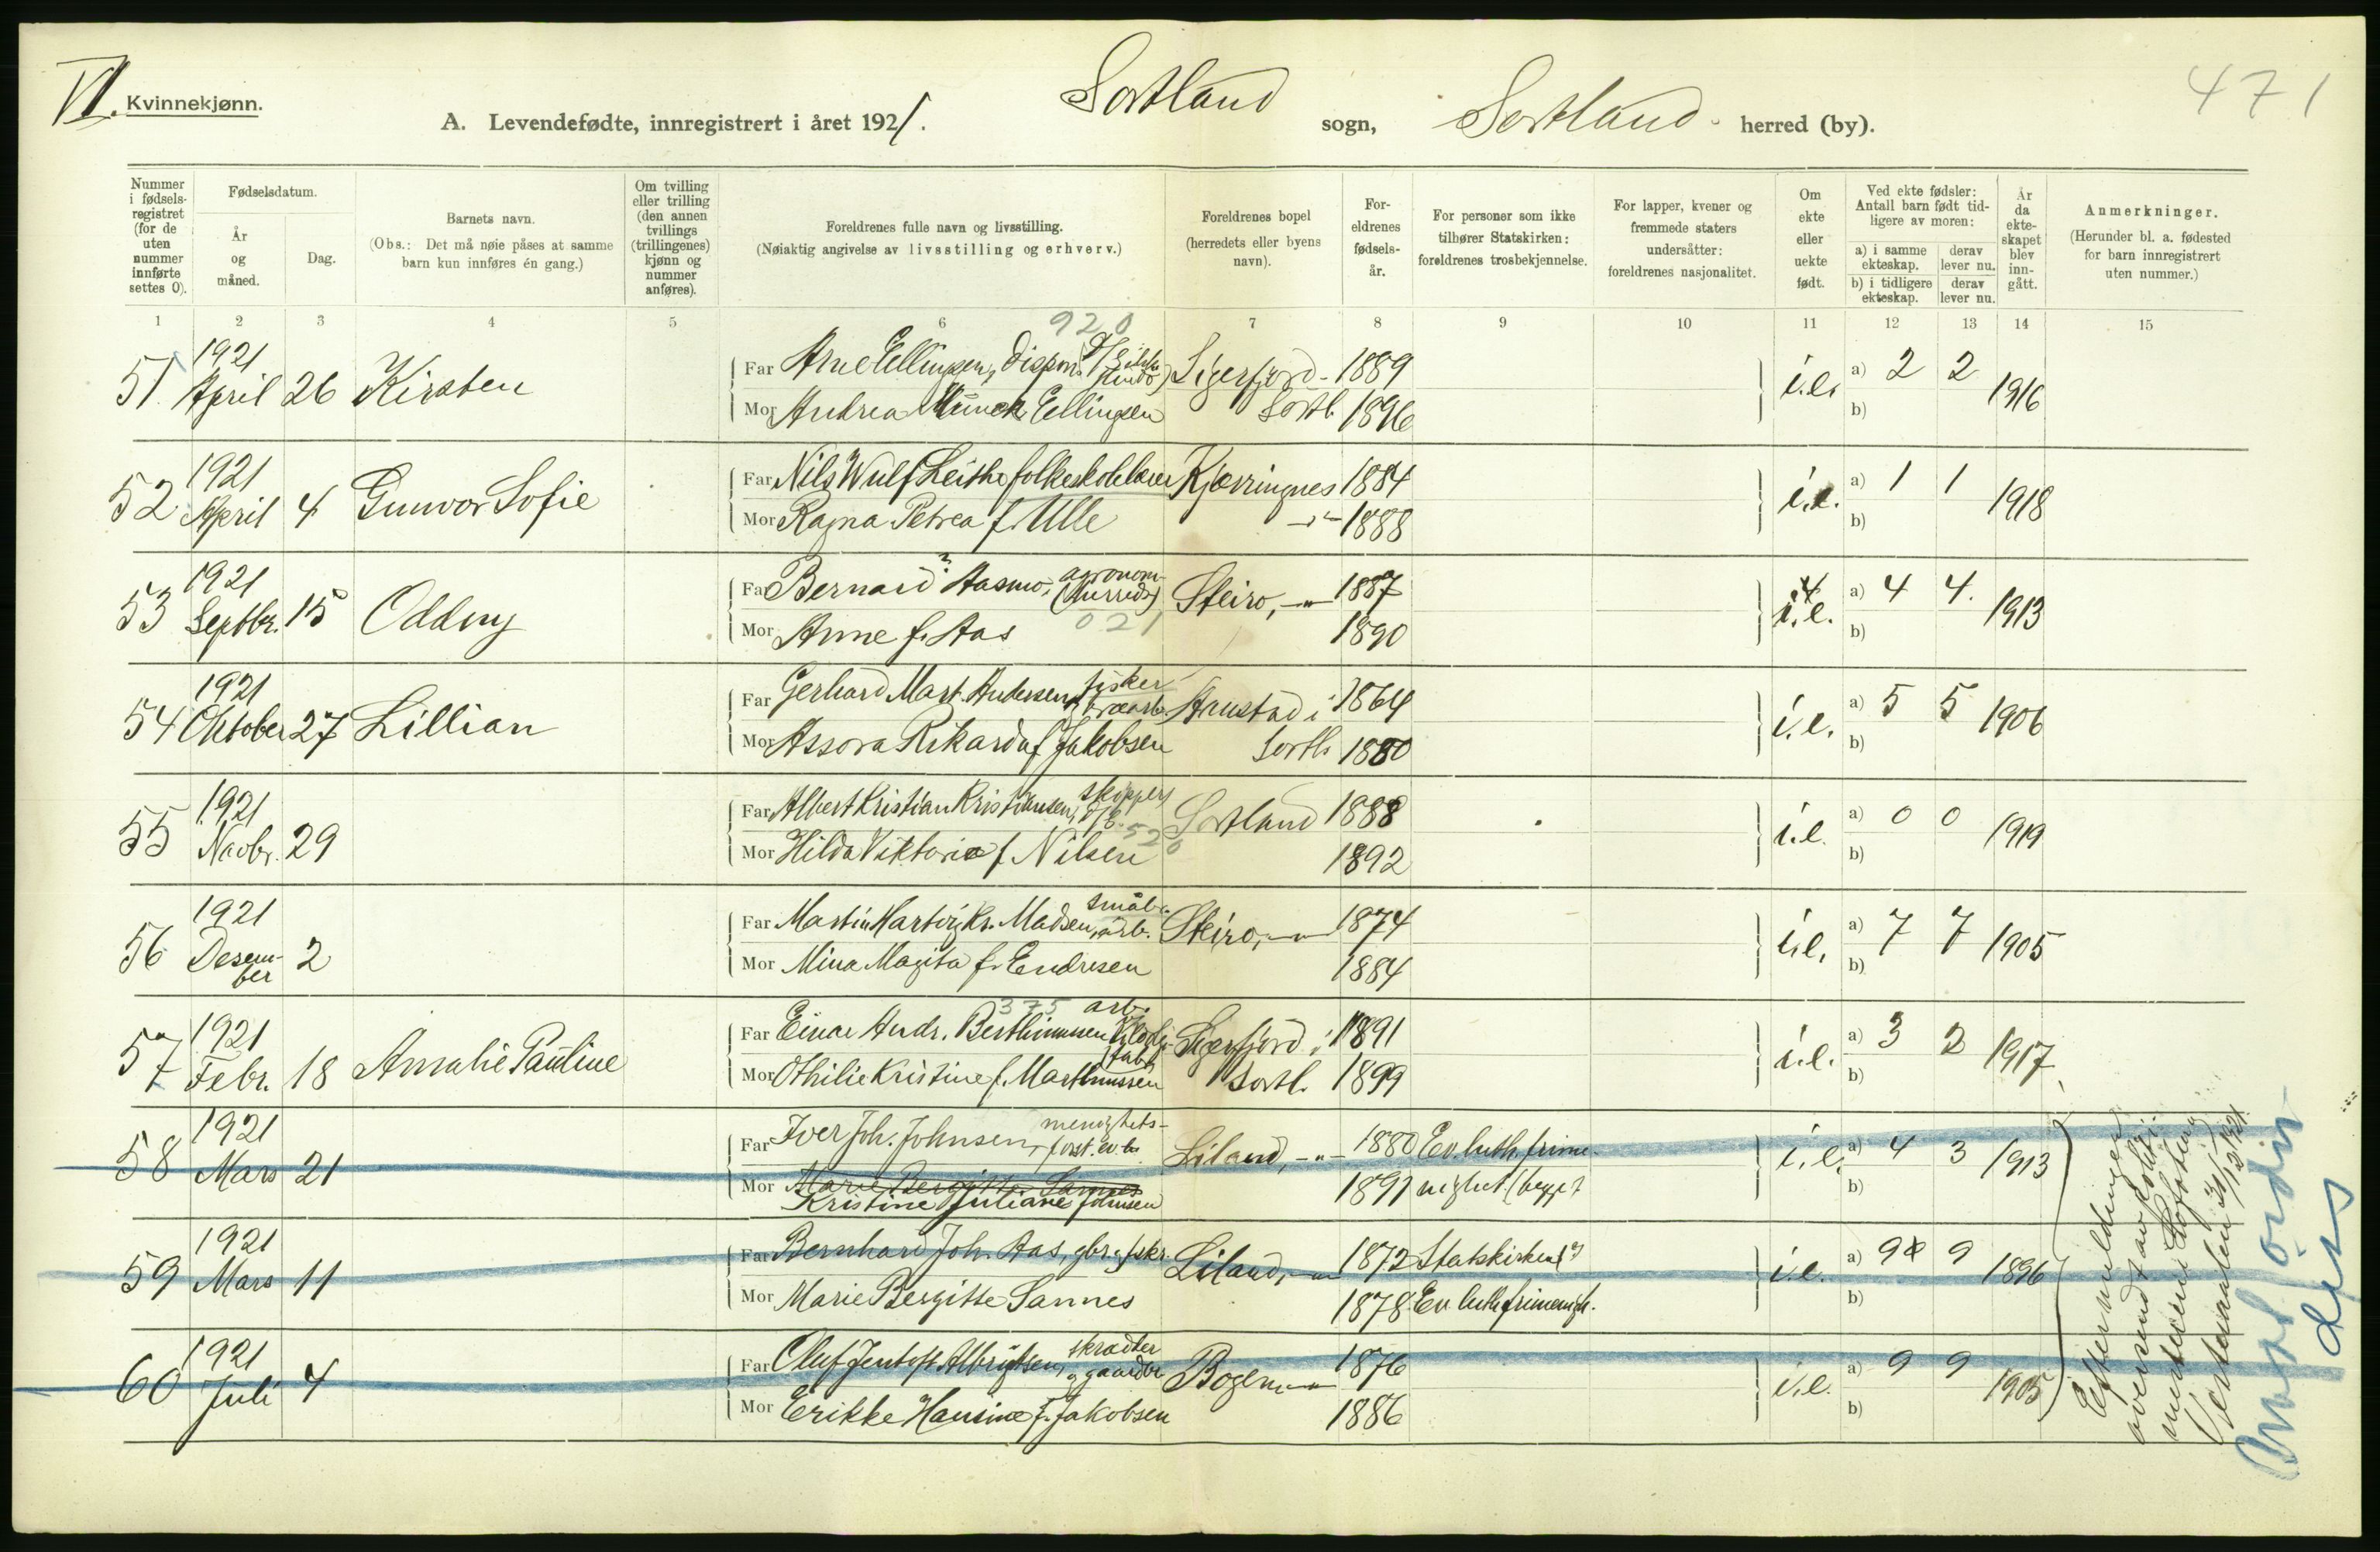 VI. Kvinnekjønn.
A. Levendefødte, innregistrert i året 1921. Sortland sogn, Sortland herred (by).
471
Nummer i fødsels- registret (for de uten nummer innførte settes 0).
Fødselsdatum.
År og måned.
Dag.
Barnets navn.
(Obs.: Det må nøie påses at samme barn kun innføres én gang.)
Om tvilling eller trilling (den annen tvillings (trillingenes) kjønn og nummer anføres).
Foreldrenes fulle navn og livsstilling.
(Nøiaktig angivelse av livsstilling og erhverv.)
Foreldrenes bopel (herredets eller byens navn).
For- eldrenes fødsels- år.
For personer som ikke tilhører Statskirken: foreldrenes trosbekjennelse.
For lapper, kvener og fremmede staters undersåtter: foreldrenes nasjonalitet.
Om ekte eller uekte født.
Ved ekte fødsler: Antall barn født tid- ligere av moren:
a) i samme ekteskap.
derav lever nu.
b) i tidligere ekteskap.
derav lever nu.
År da ekte- skapet blev inn- gått.
Anmerkninger.
(Herunder bl. a. fødested for barn innregistrert uten nummer.)
1 2 3 4 5 6 7 8 9 10 11 12 13 14 15
920
51 1921 April 26 Kirsten
Far Arne Ellingsen, dispon. Sigerfjord - 1889 i.e. a) 2 2 1916
Mor Andrea Munch Ellingsen Sortl. 1896 b)
52 1921 April 4 Gunvor Sofie
Far Nils Wulf Leithe folkeskolelærer Kjerringnes 1884 i.e. a) 1 1 1918
Mor Ragna Petrea f. Ulle -"- 1888 b)
53 1921 Septbr. 15 Oddny
Far Bernard Aasmo, agronom (Hurrids) Steiro, -"- 1887 i.e. a) 4 4. 1913
Mor Anne f. Aas 021 1890 b)
54 1921 Oktober 27 Lillian
Far Gerhard Mart. Andersen, fisker Aanstad i 1864 i.e. a) 5 5 1906
Mor Assora Rikarda f. Jakobsen Sortl. 1880 b)
55 1921 Novbr. 29
Far Albert Kristian Kristiansen, skipper Sortland 1888 i.e. a) 0 0 1919
520
Mor Hilda Viktoria f. Nilsen 1892 b)
56 1921 Desem- ber 2
Far Martin Hartvig Kr. Madsen, småbr. arb. Steiro, -"- 1874 i.e. a) 7 7 1905
Mor Mina Magita f. Endresen 1884 b)
375
57 1921 Febr. 18 Amalie Pauline
Far Einar Andr. Berthinussen arb. Sigerfjord i 1891 i.e. a) 3 2 1917
Mor Othilie Kristine f. Marthinussen Sortl. 1899 b)
58 1921 Mars 21
Far Iver Joh. Johnsen, menighets- forst. Liland, -"- 1880 Ev. luth. frime- i.e. a) 4 3 1913
Mor Marie Bergitte Sannes
Kristine Juliane Johnsen 1891 nighet. b)
59 1921 Mars 11
Far Bernhard Joh. Aas, gbr. fisker Liland, -"- 1872 Statskirken i.e. a) 9 9 1896
Mor Marie Bergitte Sannes 1878 Ev. luth. frimenigh. b)
60 1921 Juli 4
Far Oluf Jentoft Albrigtsen, skrædder og gaardbr. Bogen -"- 1876 i.e. a) 9 9 1905
Mor Erikke Hansine f. Jakobsen 1886 b)
Eftermeldinger
oversendt av politi-
mesteren i Lofoten og
Vesteraalen 31/12 1921.